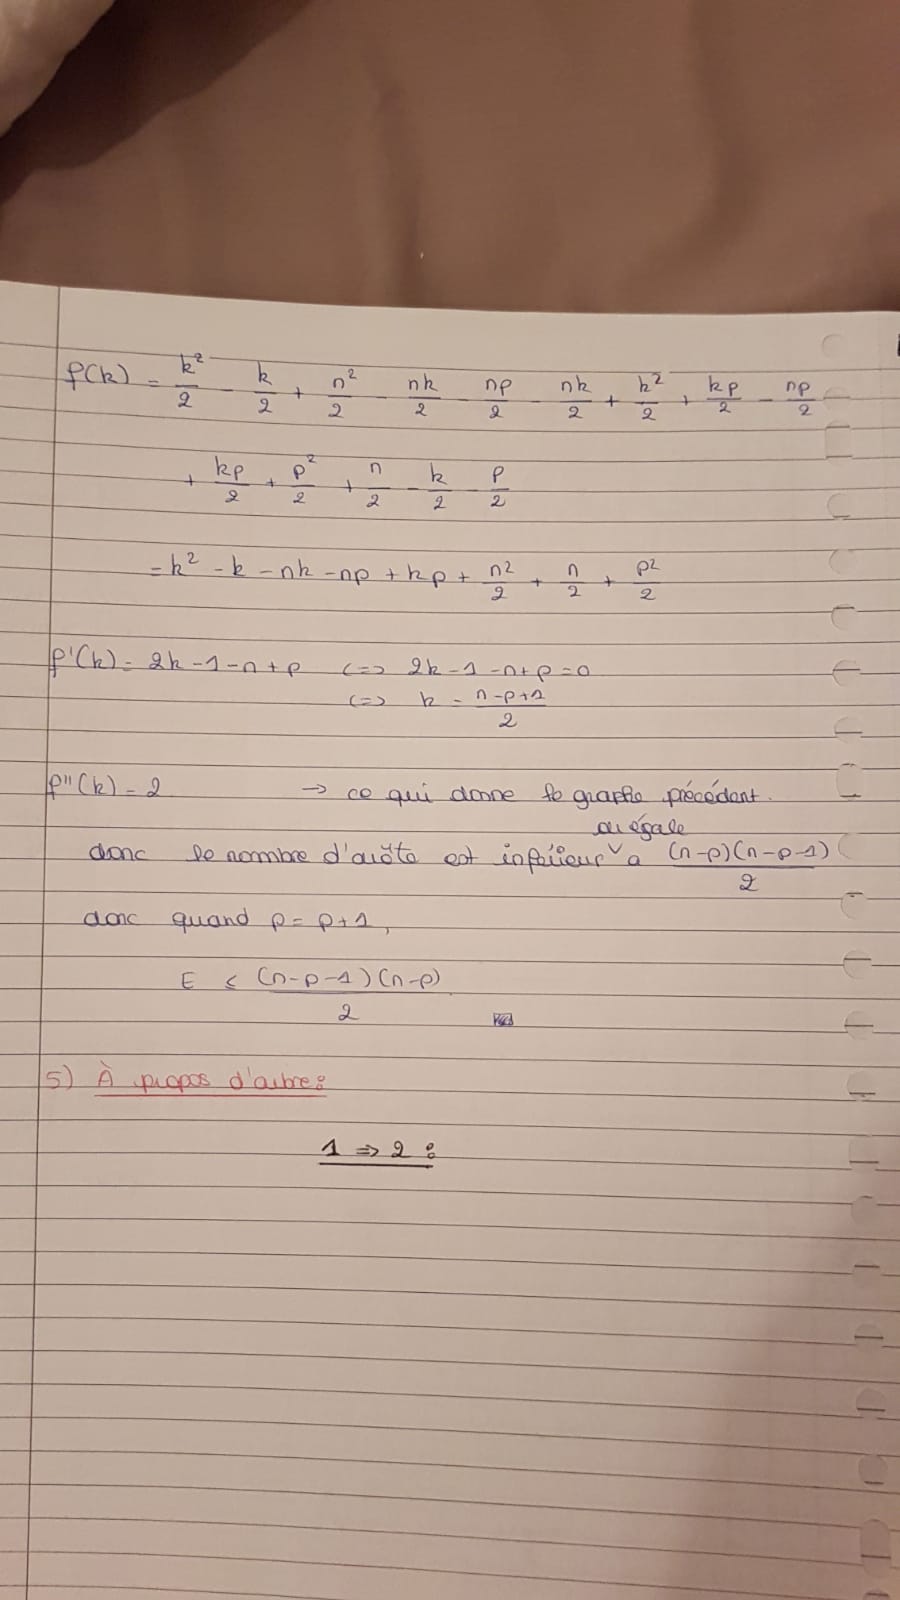 f(k) = k²/2 - k/2 + n²/2 - nk/2 - np/2 - nk/2 + k²/2 + kp/2 - np/2
+ kp/2 + p²/2 + n/2 - k/2 - p/2
= k² - k - nk - np + kp + n²/2 + n/2 + p²/2
f'(k) = 2k - 1 - n + p <=> 2k - 1 - n + p = 0
<=> k = (n-p+1)/2
f''(k) = 2 → ce qui donne le graphe précédant.
ou égale
donc le nombre d'arête est inférieur ˅ a (n-p)(n-p-1)/2
donc quand p = p+1,
E ≤ (n-p-1)(n-p)/2
5) À propos d'arbre :
1 => 2 :